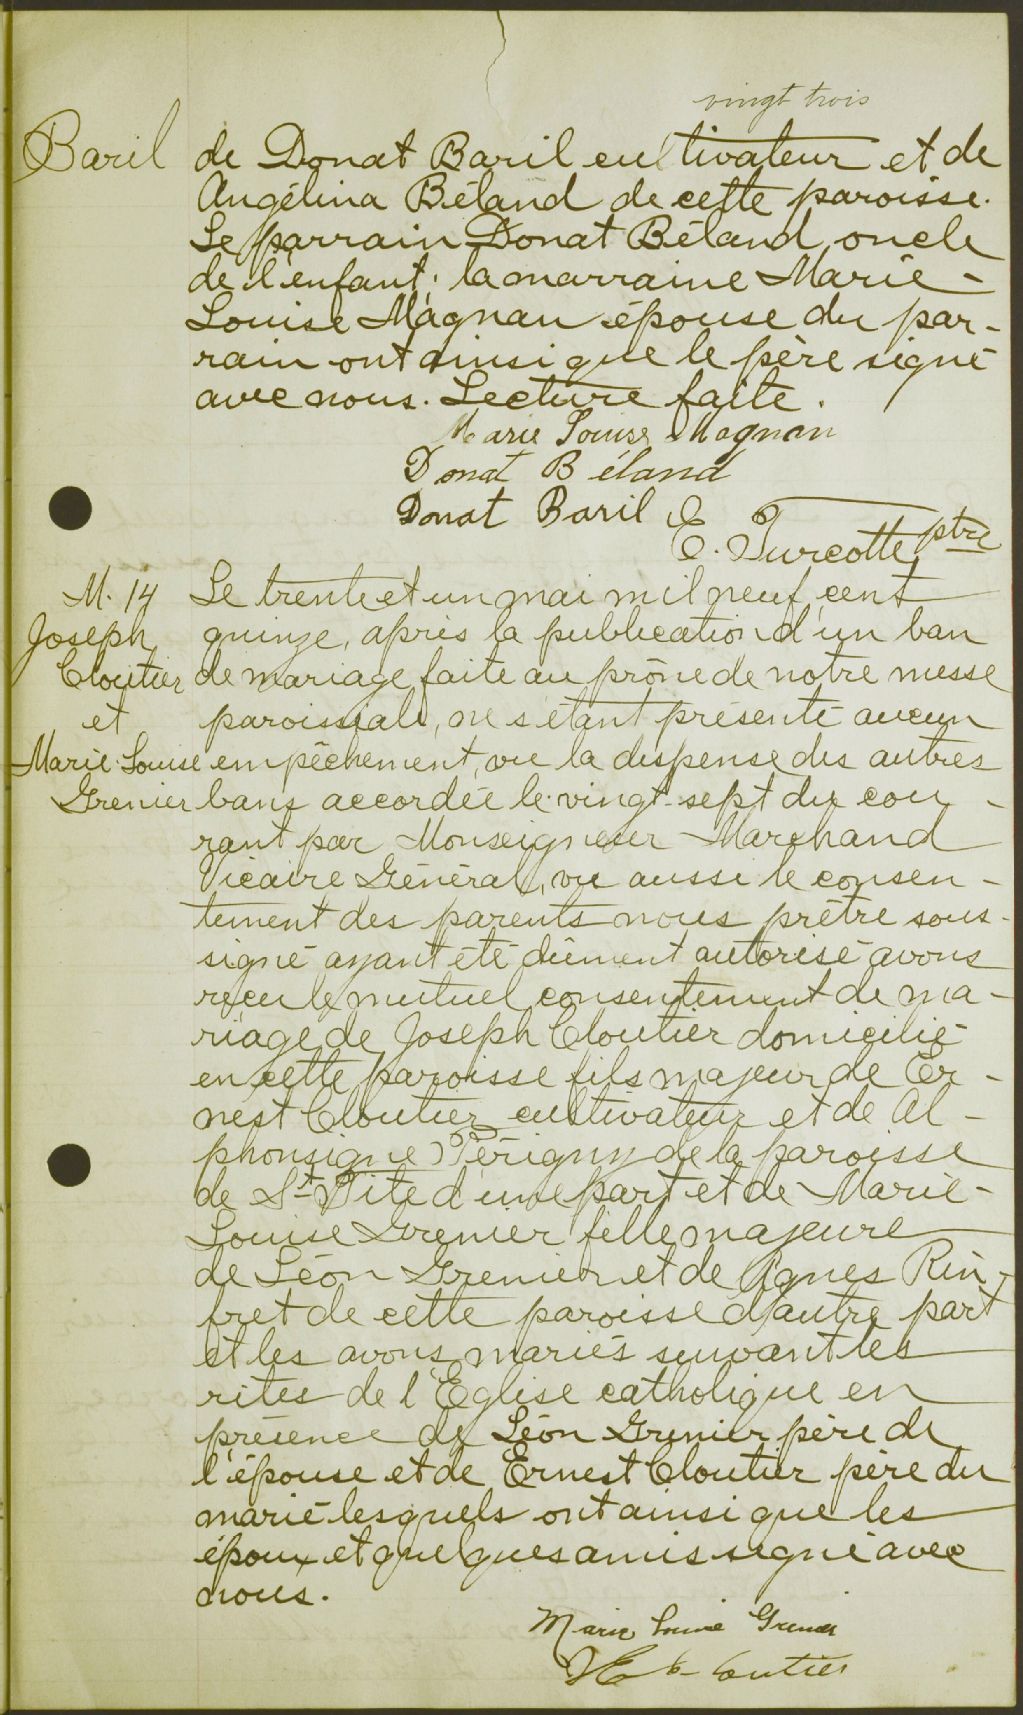 vingt trois
Baril
de Donat Baril cultivateur et de
Angélina Béland de cette paroisse.
Le parrain Donat Béland, oncle
de l'enfant; la marraine Marie-
Louise Magnan épouse du par-
rain ont ainsi que le père signé
avec nous. Lecture faite.
Marie Louise Magnan
Donat Béland
Donat Baril
E. Turcotte ptre
M. 14
Joseph
Cloutier
et
Marie-Louise
Grenier
Le trente et un mai mil neuf cent
quinze, après la publication d'un ban
de mariage faite au prône de notre messe
paroissiale, ne s'étant présenté aucun
empêchement, vu la dispense des autres
bans accordée le vingt-sept du cou-
rant par Monseigneur Marchand
Vicaire Général, vu aussi le consen-
tement des parents nous prêtre sous-
signé ayant été dûment autorisé avons
reçu le mutuel consentement de ma-
riage de Joseph Cloutier domicilié
en cette paroisse fils majeur de Er-
nest Cloutier cultivateur et de Al-
phonsigne Périgny de la paroisse
de St Tite d'une part et de Marie-
Louise Grenier fille majeure
de Léon Grenier et de Agnes Rin-
fret de cette paroisse d'autre part
et les avons mariés suivant les
rites de l'Eglise catholique en
présence de Léon Grenier père de
l'épouse et de Ernest Cloutier père du
marié lesquels ont ainsi que les
époux et quelques amis signé avec
nous.
Marie Louise Grenier
Cloutier